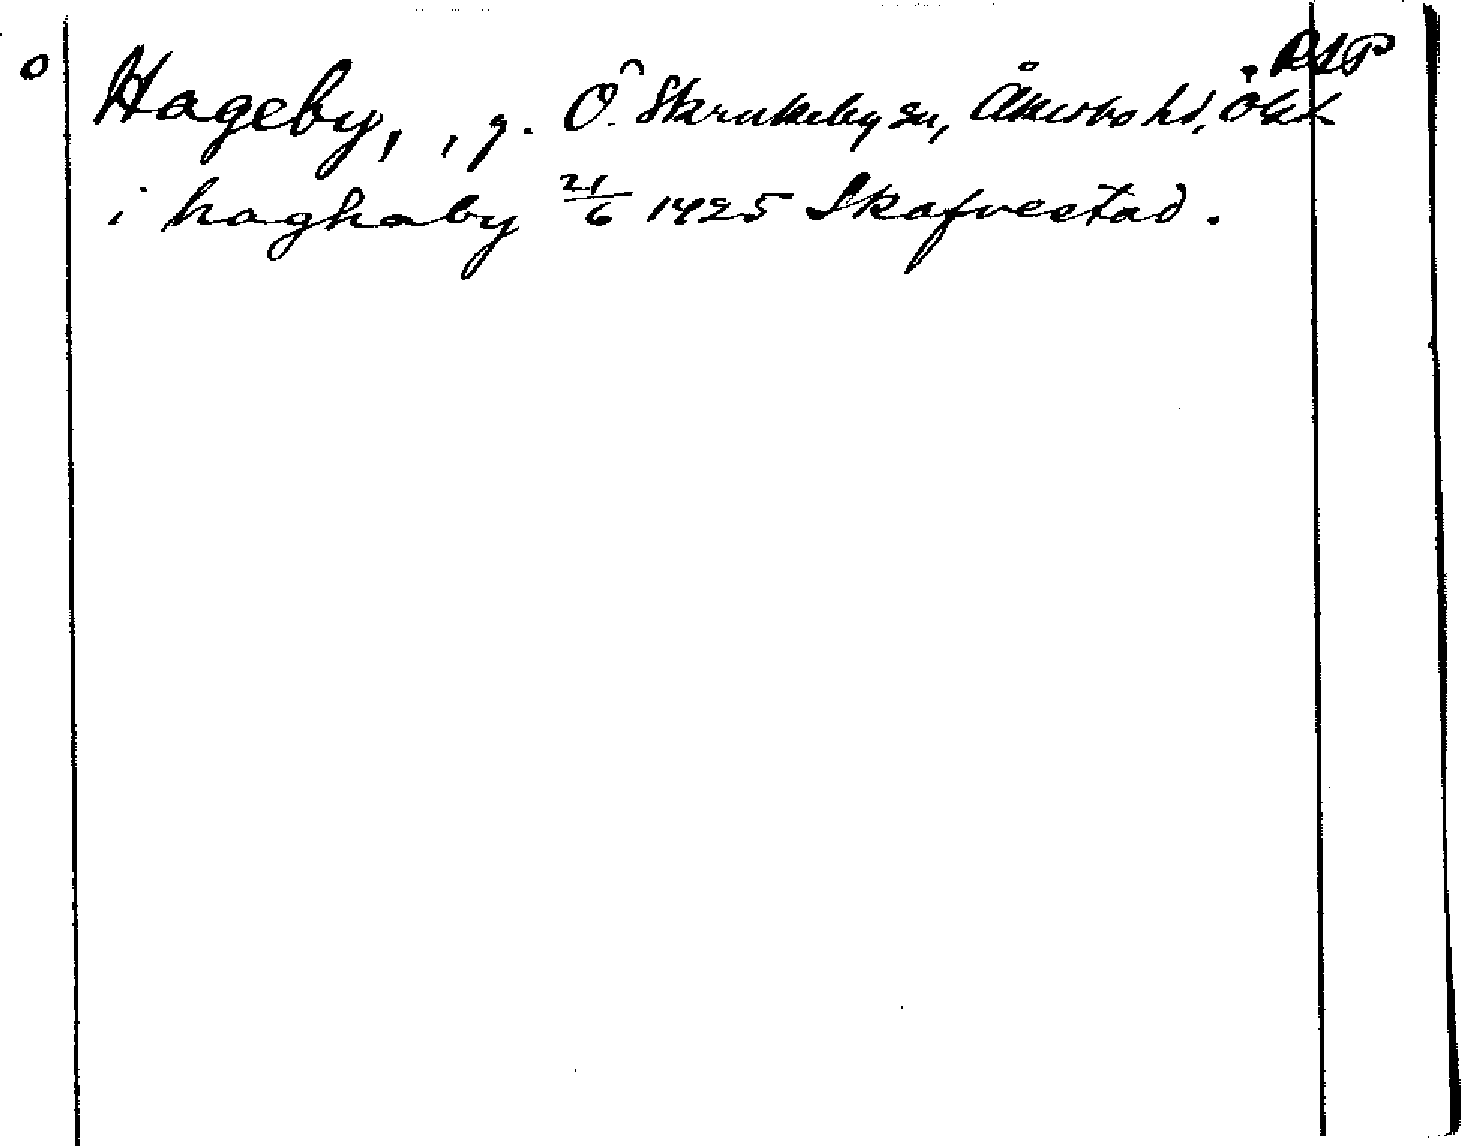 o Hageby, , g. Ö. Skrukeby sn, Åkerbo hd, Ögl. RAP
i haghaby 21/6 1425 Skafvestad.